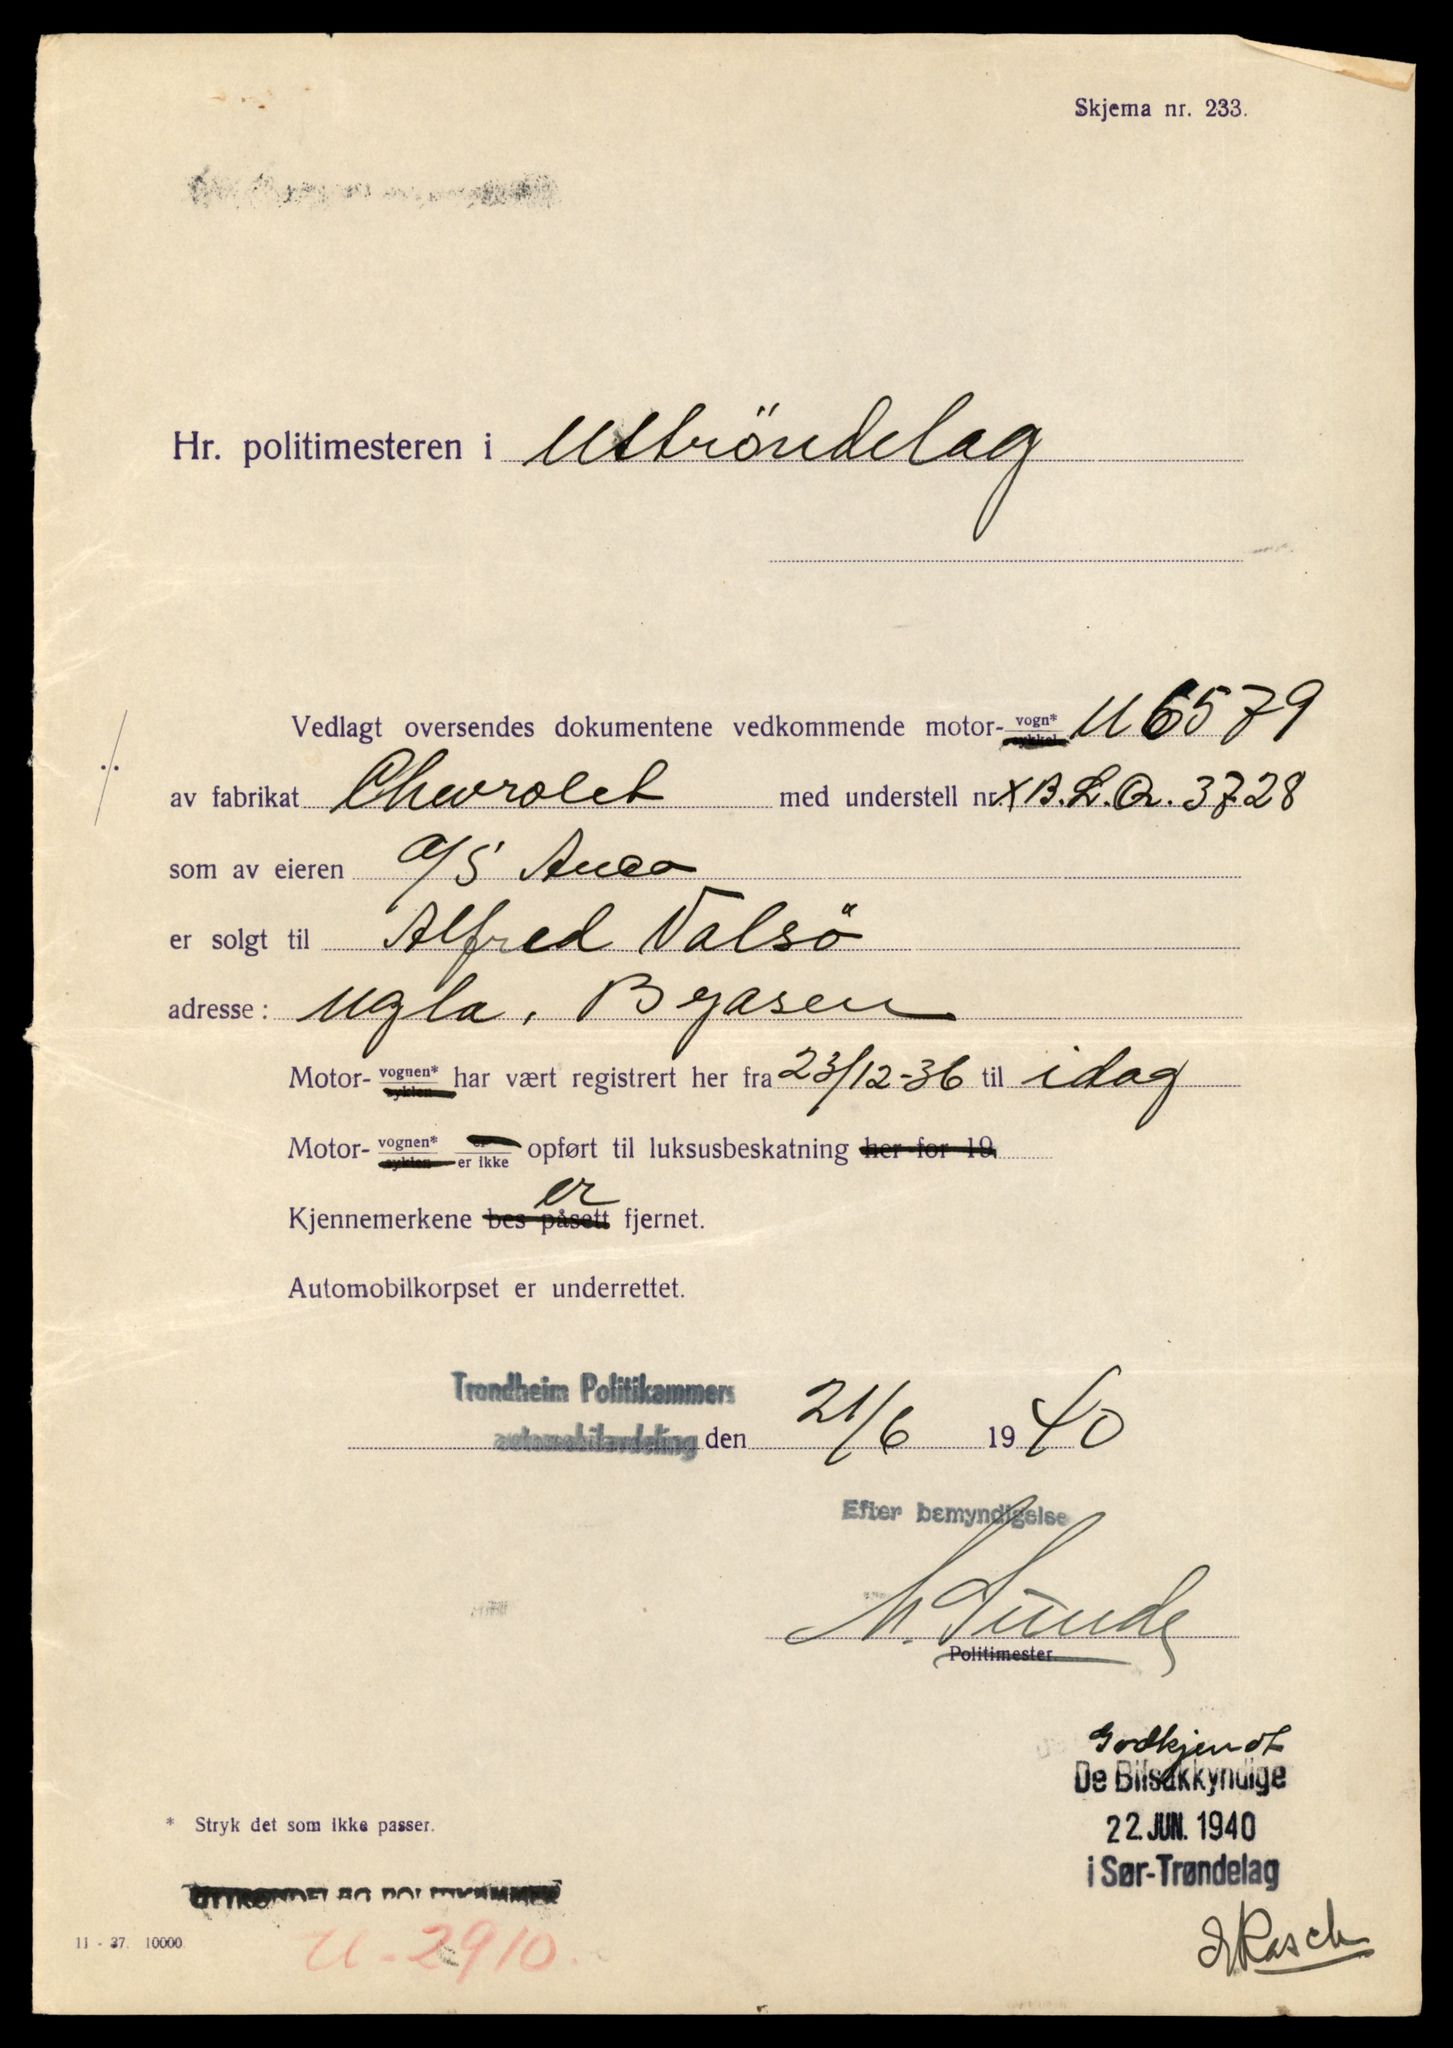 Skjema nr. 233.
Hr. politimesteren i Uttröndelag
Vedlagt oversendes dokumentene vedkommende motor- vogn* sykkel U 6579
av fabrikat Chevrolet med understell nr. XB.L.Q. 3728
som av eieren A/S Auco
er solgt til Alfred Valsö
adresse: Ugla, Byasen
Motor- vognen* syklen har vært registrert her fra 23/12-36 til idag
Motor- vognen* syklen er er ikke opført til luksusbeskatning her for 19
er
Kjennemerkene bes påsett fjernet.
Automobilkorpset er underrettet.
Trondheim Politikammers
automobilavdeling den 21/6 1940
Efter bemyndigelse
M. Sunde
Politimester
Godkjendt
De Bilsakkyndige
22. JUN. 1940
i Sør-Trøndelag
Rasch
* Stryk det som ikke passer.
UTTRØNDELAG POLITIKAMMER
U-2910.
11 - 37. 10000.